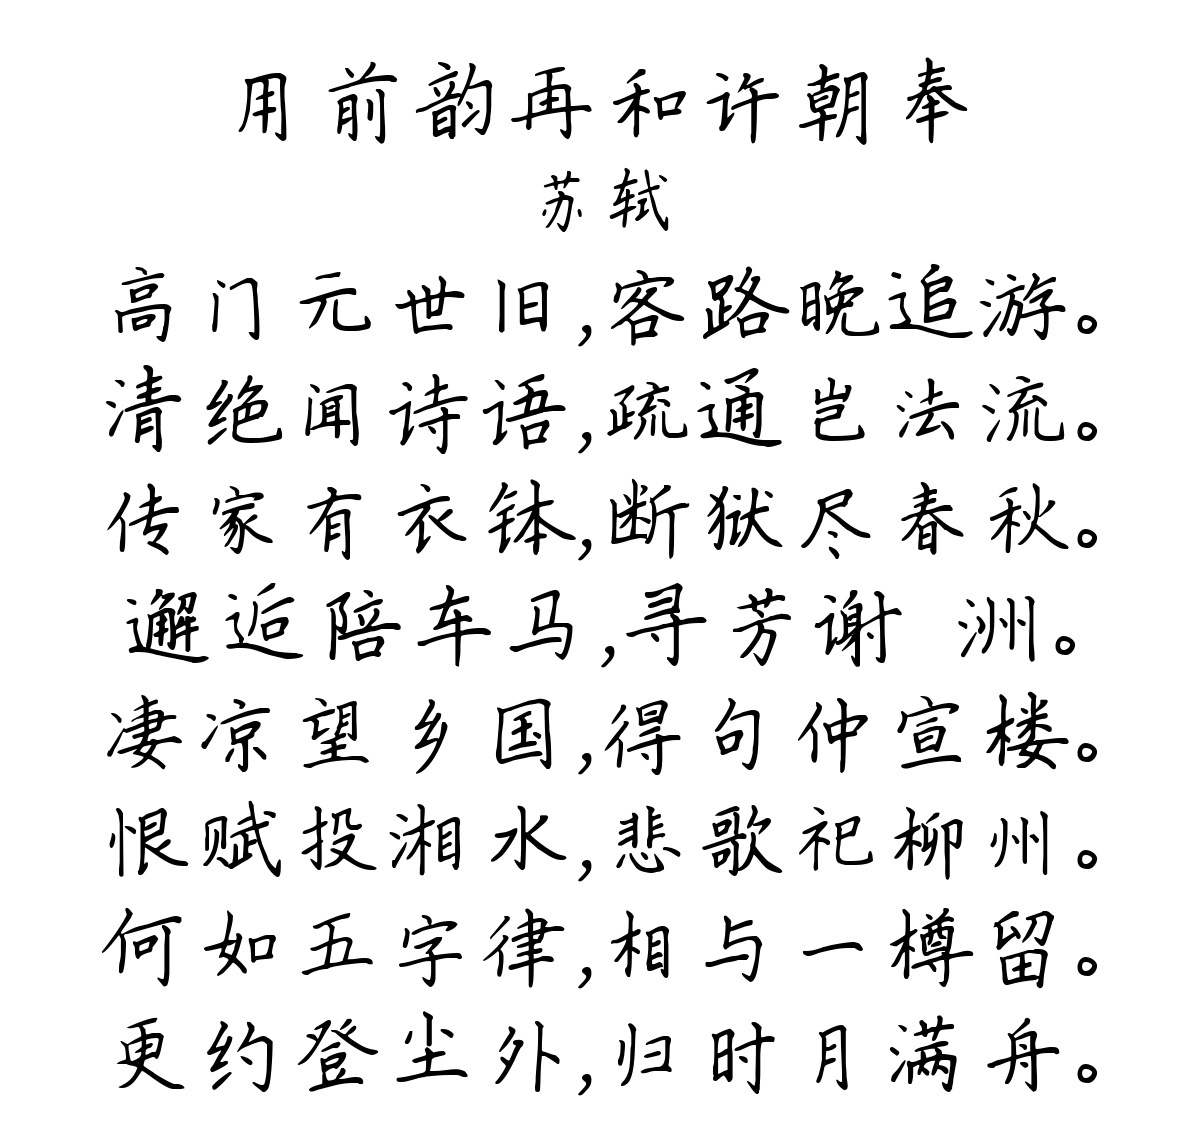 用前韵再和许朝奉
苏轼
高门元世旧,客路晚追游。
清绝闻诗语,疏通岂法流。
传家有衣钵,断狱尽春秋。
邂逅陪车马,寻芳谢 洲。
凄凉望乡国,得句仲宣楼。
恨赋投湘水,悲歌祀柳州。
何如五字律,相与一樽留。
更约登尘外,归时月满舟。